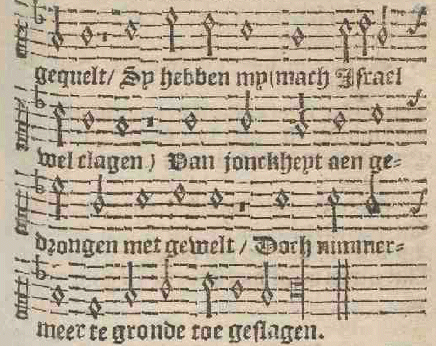 gequelt/ Sy hebben my(mach Israel
wel clagen) Van jonckheyt aen ge-
drongen met gewelt / Doch nimmer-
meer te gronde toe geslagen.